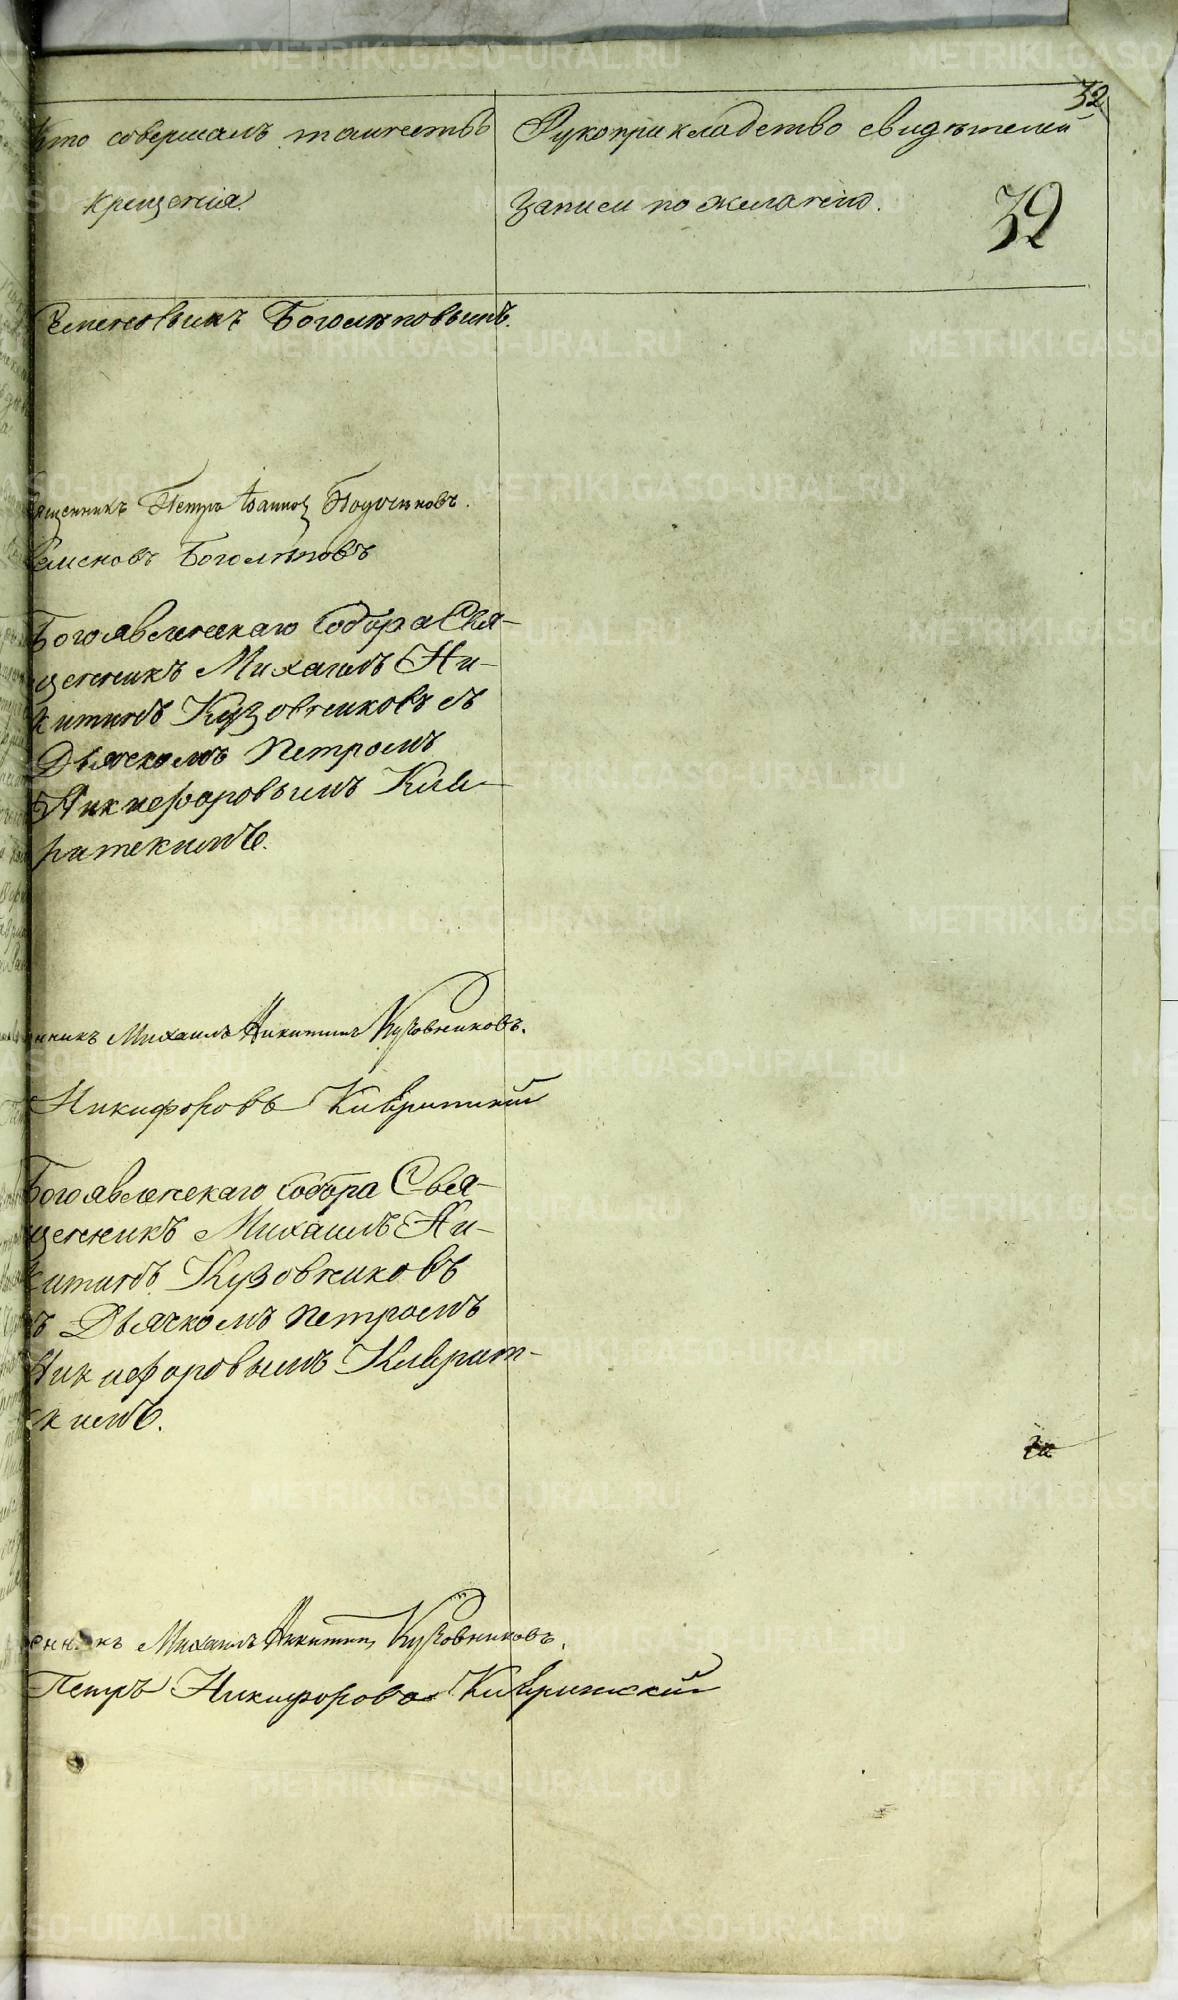 32
Кто совершалъ таинство
крещенія.
Рукоприкладство свидѣтелей
записи по желанію.
32
Семеновымъ Боголѣповымъ.
ященникъ Петръ Іоанновъ
Семеновъ Боголѣповъ
Богоявленскаго Собора Свя-
щенникъ Михаилъ Ни-
китинъ Кузовниковъ съ
Дьячкомъ Петромъ
Никифоровымъ Кив-
ритскимъ.
нникъ Михаилъ Никитинъ Кузовниковъ.
Никифоровъ Кивритскій
Богоявленскаго Собора Свя-
щенникъ Михаилъ Ни-
китинъ Кузовниковъ
съ Дьячкомъ Петромъ
Никифоровымъ Киврит-
скимъ.
енникъ Михаилъ Никитинъ Кузовниковъ.
Петръ Никифоровъ Кивритскій
METRIKI.GASO-URAL.RU